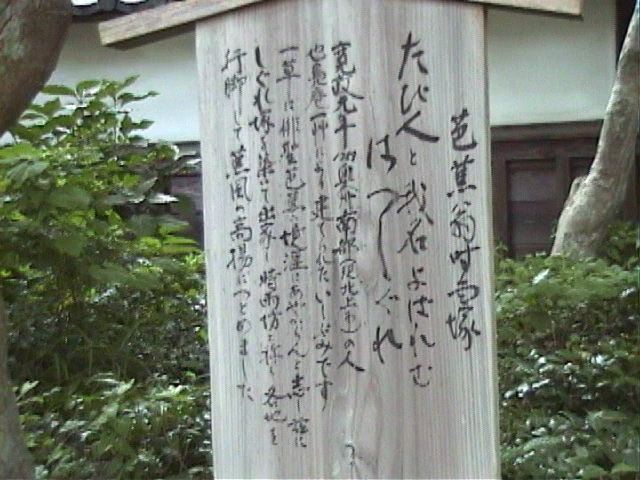 芭蕉翁時雨塚
たび人と我名よばれむ
はつしぐれ
寛政元年 奥州南部(現北上市)の人
也寥庵一草によって建てられた いしぶみです
一草は俳聖芭蕉の境涯にあやからんと志し 誰に
しぐれ塚を築いて出家し 時雨坊と称し 各地を
行脚して 蕉風の高揚につとめました